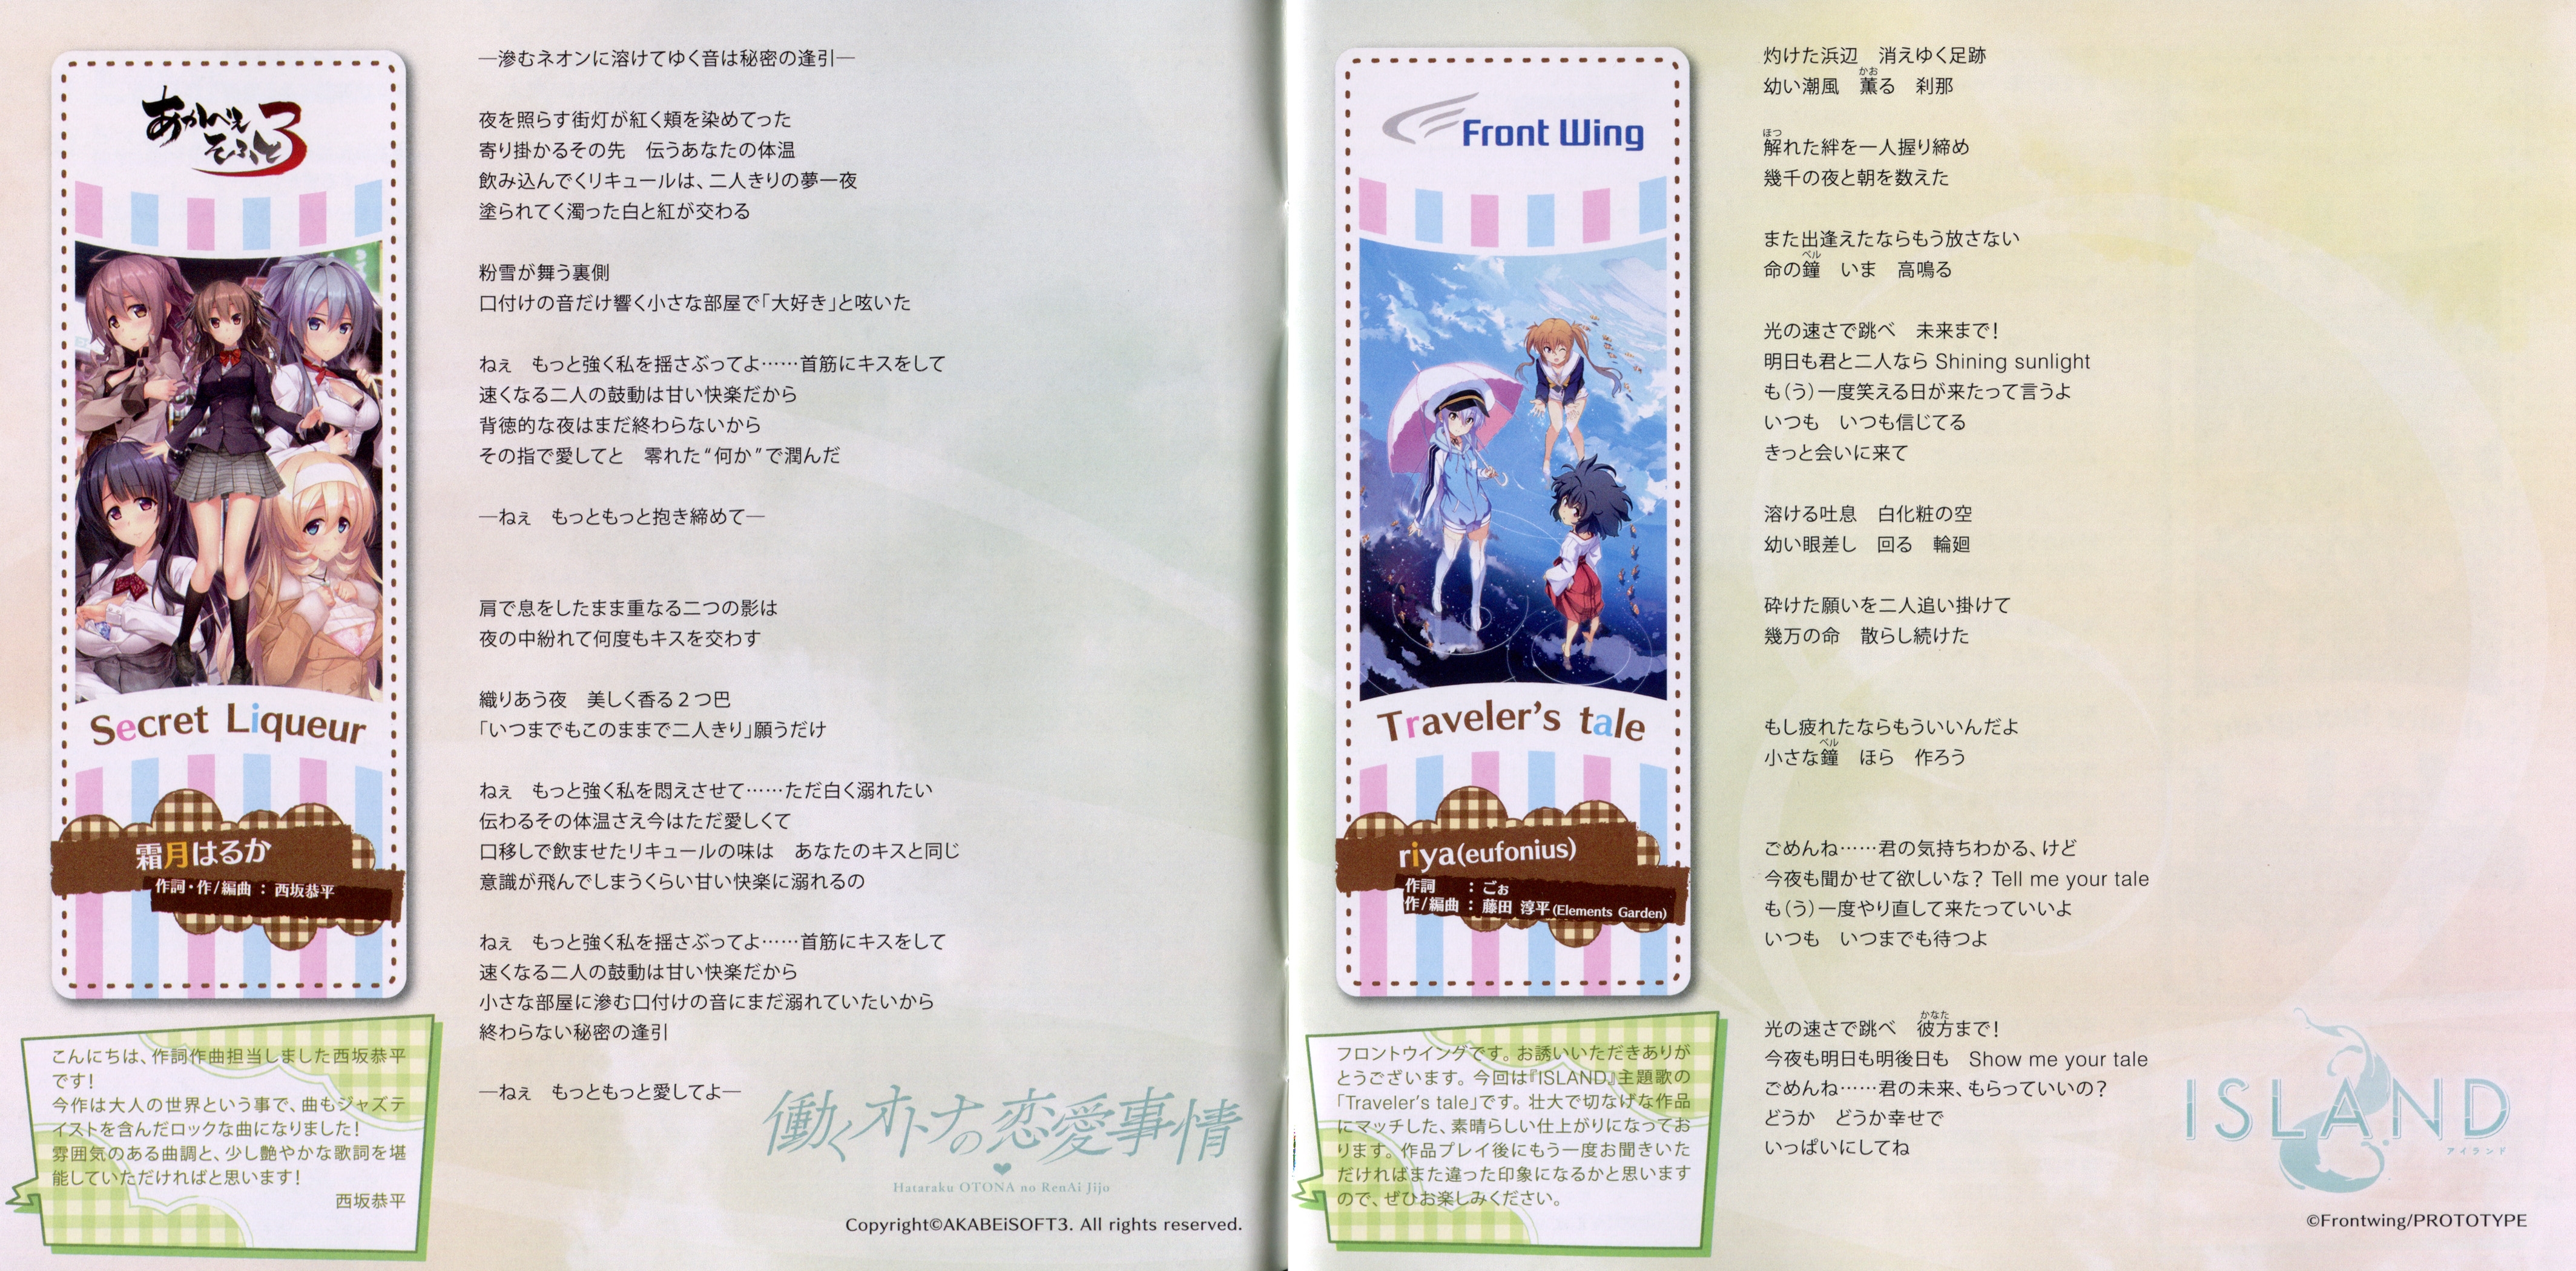 あかべぇ
そふと3
Secret Liqueur
霜月はるか
作詞・作/編曲：西坂恭平
こんにちは、作詞作曲担当しました西坂恭平
です！
今作は大人の世界という事で、曲もジャズテ
イストを含んだロックな曲になりました！
雰囲気のある曲調と、少し艶やかな歌詞を堪
能していただければと思います！
西坂恭平
―滲むネオンに溶けてゆく音は秘密の逢引―
夜を照らす街灯が紅く頬を染めてった
寄り掛かるその先　伝うあなたの体温
飲み込んでくリキュールは、二人きりの夢一夜
塗られてく濁った白と紅が交わる
粉雪が舞う裏側
口付けの音だけ響く小さな部屋で「大好き」と呟いた
ねぇ　もっと強く私を揺さぶってよ……首筋にキスをして
速くなる二人の鼓動は甘い快楽だから
背徳的な夜はまだ終わらないから
その指で愛してと　零れた“何か”で潤んだ
―ねぇ　もっともっと抱き締めて―
肩で息をしたまま重なる二つの影は
夜の中紛れて何度もキスを交わす
織りあう夜　美しく香る2つ巴
「いつまでもこのままで二人きり」願うだけ
ねぇ　もっと強く私を悶えさせて……ただ白く溺れたい
伝わるその体温さえ今はただ愛しくて
口移しで飲ませたリキュールの味は　あなたのキスと同じ
意識が飛んでしまうくらい甘い快楽に溺れるの
ねぇ　もっと強く私を揺さぶってよ……首筋にキスをして
速くなる二人の鼓動は甘い快楽だから
小さな部屋に滲む口付けの音にまだ溺れていたいから
終わらない秘密の逢引
―ねぇ　もっともっと愛してよ―
働くオトナの恋愛事情
Hataraku OTONA no RenAi Jijo
Copyright©AKABEiSOFT3. All rights reserved.
Front Wing
Traveler's tale
riya(eufonius)
作詞　：ごぉ
作/編曲：藤田 淳平(Elements Garden)
フロントウイングです。お誘いいただきありが
とうございます。今回は『ISLAND』主題歌の
「Traveler's tale」です。壮大で切なげな作品
にマッチした、素晴らしい仕上がりになってお
ります。作品プレイ後にもう一度お聞きいた
だければまた違った印象になるかと思います
ので、ぜひお楽しみください。
灼けた浜辺　消えゆく足跡
かお
幼い潮風　薫る　刹那
ほつ
解れた絆を一人握り締め
幾千の夜と朝を数えた
また出逢えたならもう放さない
ベル
命の鐘　いま　高鳴る
光の速さで跳べ　未来まで！
明日も君と二人なら Shining sunlight
も（う）一度笑える日が来たって言うよ
いつも　いつも信じてる
きっと会いに来て
溶ける吐息　白化粧の空
幼い眼差し　回る　輪廻
砕けた願いを二人追い掛けて
幾万の命　散らし続けた
もし疲れたならもういいんだよ
ベル
小さな鐘　ほら　作ろう
ごめんね……君の気持ちわかる、けど
今夜も聞かせて欲しいな？ Tell me your tale
も（う）一度やり直して来たっていいよ
いつも　いつまでも待つよ
かなた
光の速さで跳べ　彼方まで！
今夜も明日も明後日も　Show me your tale
ごめんね……君の未来、もらっていいの？
どうか　どうか幸せで
いっぱいにしてね
ISLAND
アイランド
©Frontwing/PROTOTYPE